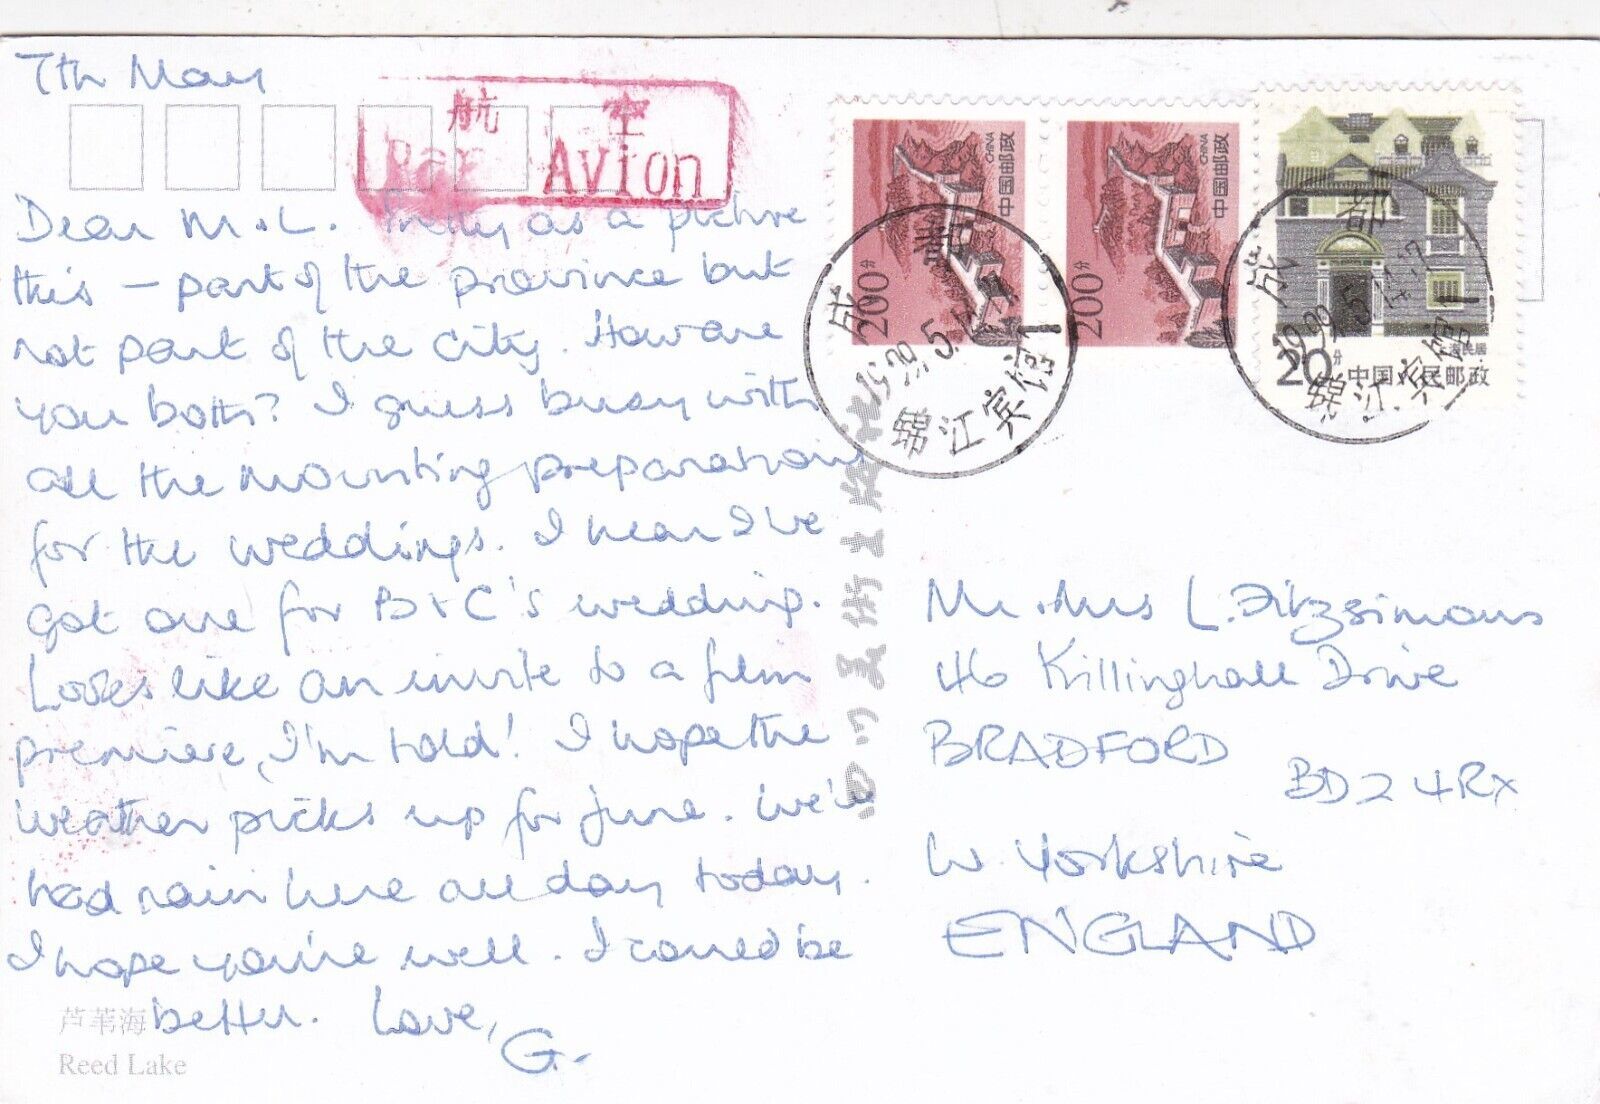 7th May
航空
Par Avion
Dear M.+L. Pretty as a picture
this – part of the province but
not part of the city. How are
you both? I guess busy with
all the mounting preparations
for the weddings. I hear I've
got one for B+C's wedding.
Looks like an invite to a film
premiere, I'm told! I hope the
weather picks up for June. We've
had rain here all day today.
I hope you're well. I could be
better. Love,
G.
芦苇海
Reed Lake
200分
中国邮政
CHINA
200分
中国邮政
CHINA
20分
上海民居
中国人民邮政
成都
1999.5.
锦江宾馆
成都
1999.5.
锦江宾馆
Mr +Mrs L. Fitzsimons
46 Killinghall Drive
BRADFORD
BD2 4RX
W. Yorkshire
ENGLAND